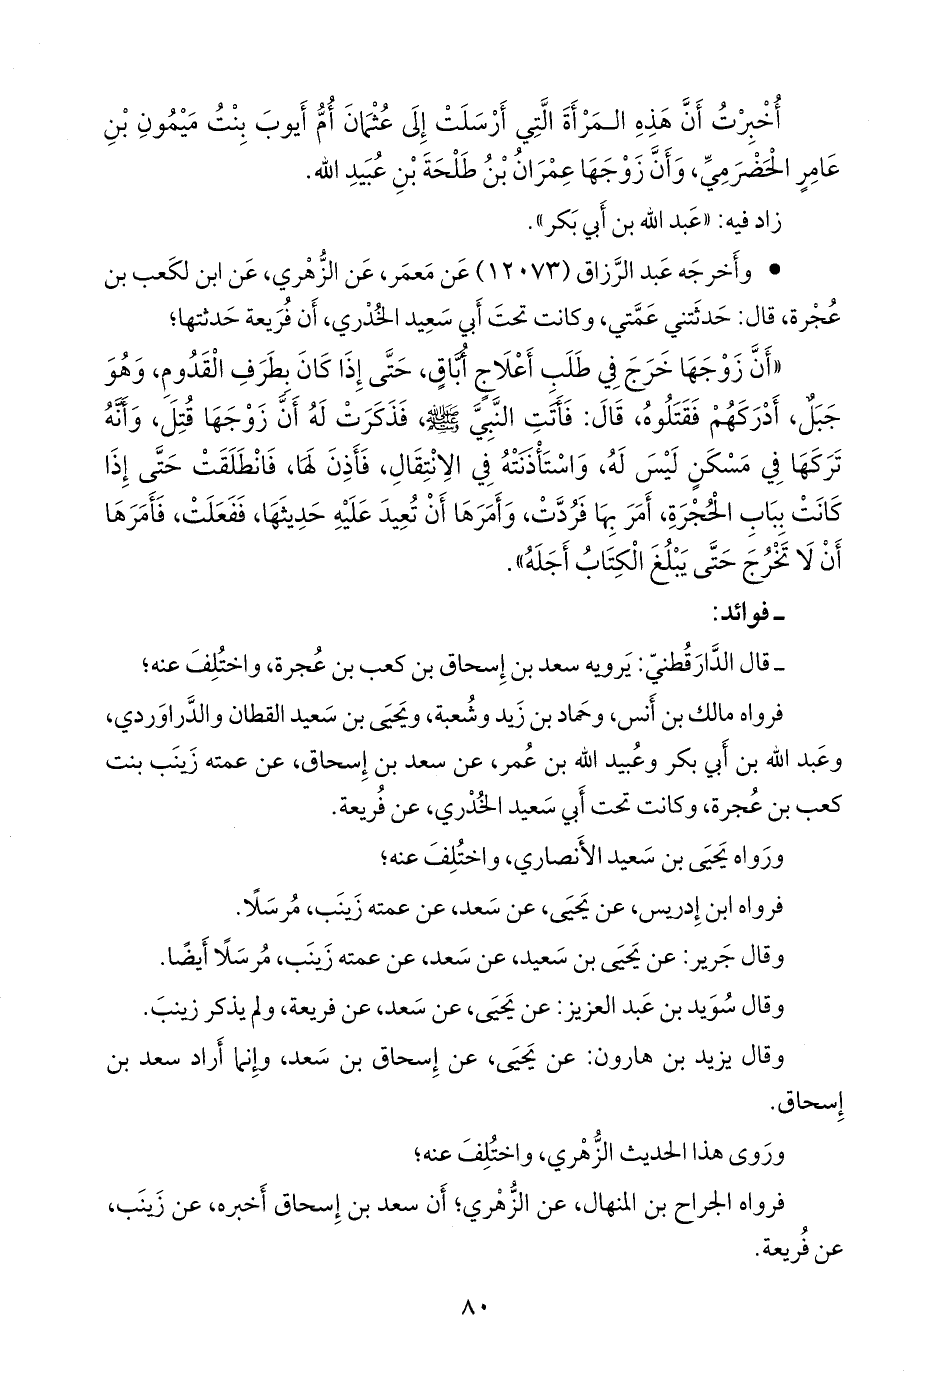 أُخْبِرْتُ أَنَّ هَذِهِ الـمَرْأَةَ الَّتِي أَرْسَلَتْ إِلَى عُثْمَانَ أُمُّ أَيوبَ بِنْتُ مَيْمُونِ بْنِ
عَامِرٍ الْحَضْرَمِيِّ، وَأَنَّ زَوْجَهَا عِمْرَانُ بْنُ طَلْحَةَ بْنِ عُبَيدِ الله.
زاد فيه: «عَبد الله بن أَبي بَكر».
• وأَخرجَه عَبد الرَّزاق (١٢٠٧٣) عَن مَعمَر، عَن الزُّهْري، عَن ابن لكَعب بن
عُجْرة، قال: حَدثَتني عَمَّتي، وكانت تحتَ أَبي سَعِيد الخُدْري، أَن فُرَيعة حَدثتها؛
«أَنَّ زَوْجَهَا خَرَجَ فِي طَلَبِ أَعْلَاجٍ أُبَّاقٍ، حَتَّى إِذَا كَانَ بِطَرَفِ الْقَدُومِ، وَهُوَ
جَبَلٌ، أَدْرَكَهُمْ فَقَتَلُوهُ، قَالَ: فَأَتَتِ النَّبِيَّ ﷺ، فَذَكَرَتْ لَهُ أَنَّ زَوْجَهَا قُتِلَ، وَأَنَّهُ
تَرَكَهَا فِي مَسْكَنٍ لَيْسَ لَهُ، وَاسْتَأْذَنَتْهُ فِي الِانْتِقَالِ، فَأَذِنَ لَهَا، فَانْطَلَقَتْ حَتَّى إِذَا
كَانَتْ بِبَابِ الْحُجْرَةِ، أَمَرَ بِهَا فَرُدَّتْ، وَأَمَرَهَا أَنْ تُعِيدَ عَلَيْهِ حَدِيثَهَا، فَفَعَلَتْ، فَأَمَرَهَا
أَنْ لَا تَخْرُجَ حَتَّى يَبْلُغَ الْكِتَابُ أَجَلَهُ».
ـ فوائد:
ـ قال الدَّارَقُطنيّ: يَرويه سعد بن إِسحاق بن كعب بن عُجرة، واختُلِفَ عنه؛
فرواه مالك بن أَنس، وحَماد بن زَيد وشُعبة، ويَحيَى بن سَعيد القطان والدَّراوَردي،
وعَبد الله بن أَبي بكر وعُبيد الله بن عُمر، عن سعد بن إِسحاق، عن عمته زَينَب بنت
كعب بن عُجرة، وكانت تحت أَبي سَعيد الخُدْري، عن فُريعة.
ورَواه يَحيَى بن سَعيد الأَنصاري، واختُلِفَ عنه؛
فرواه ابن إِدريس، عن يَحيَى، عن سَعد، عن عمته زَينَب، مُرسَلًا.
وقال جَرير: عن يَحيَى بن سَعيد، عن سَعد، عن عمته زَينَب، مُرسَلًا أَيضًا.
وقال سُوَيد بن عَبد العزيز: عن يَحيَى، عن سَعد، عن فريعة، ولم يذكر زينبَ.
وقال يزيد بن هارون: عن يَحيَى، عن إِسحاق بن سَعد، وإِنما أَراد سعد بن
إِسحاق.
ورَوى هذا الحديث الزُّهْري، واختُلِفَ عنه؛
فرواه الجراح بن المنهال، عن الزُّهْري؛ أَن سعد بن إِسحاق أَخبره، عن زَينَب،
عن فُريعة.
٨٠